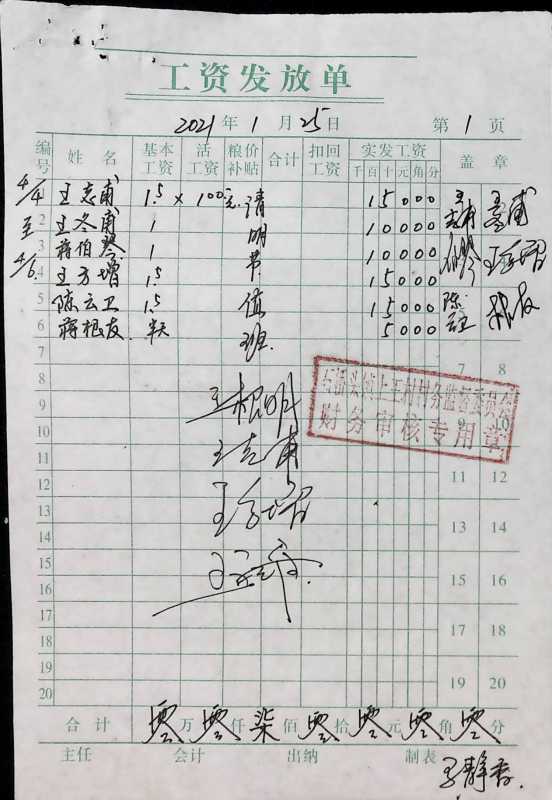 工资发放单
2021年1月25日 第1页
编号 姓名 基本工资 活工资 粮价补贴 合计 扣回工资 实发工资 盖章
千百十元角分
4/4 王志甫 1.5 × 100元 清 15000
至 2 王冬甫 1 明 10000
3 蒋伯琴 1 节 10000
4/6 4 王方增 1.5 15000
5 陈云卫 1.5 值 15000
6 蒋根友 半天 班 5000 根友
7
8 7 8
9 王根明
石桥头镇上王村村务监督委员会
财务审核专用章
9 10
10 王志甫
11 11 12
12 王方增
13 13 14
14
15 15 16
16
17 17 18
18
19 19 20
20
合计 零万零仟柒佰零拾零元零角零分
主任 会计 出纳 制表
王静香